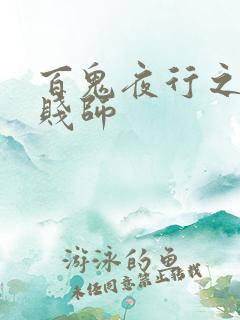 百鬼夜行之
賤師
游泳的鱼
未经同意禁止转载